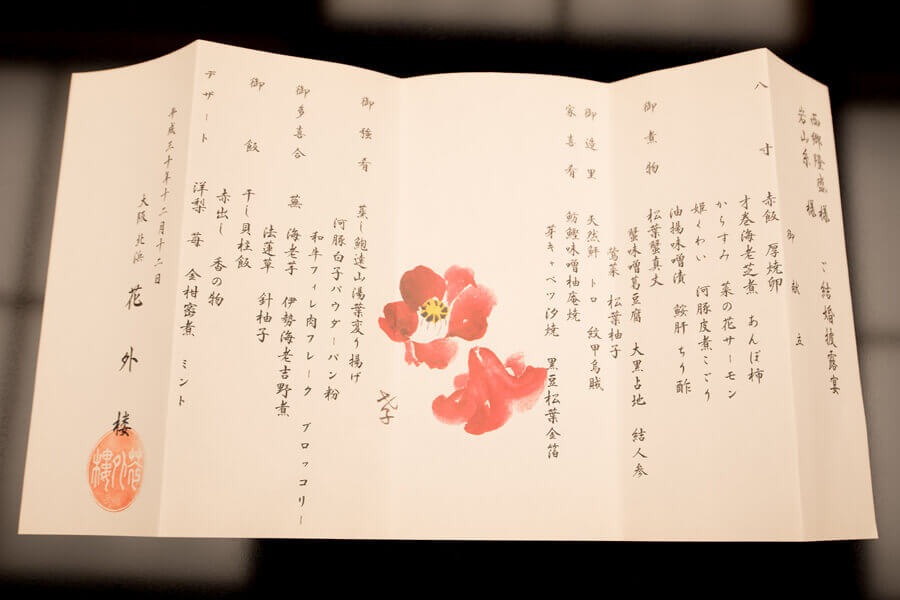 西郷隆盛 様
岩山糸 様
ご結婚披露宴
御献立
八寸
赤飯 厚焼卵
才巻海老芝煮 あんぽ柿
からすみ 菜の花サーモン
姫くわい 河豚皮煮こごり
油揚味噌漬 鮟肝ちり酢
御煮物
松葉蟹真丈
蟹味噌葛豆腐 大黒占地 結人参
鶯菜 松葉柚子
御造里
天然鮃 トロ 紋甲烏賊
家喜肴
魴鰹味噌柚庵焼
芽キャベツ汐焼 黒豆松葉金箔
御強肴
蒸し鮑達山湯葉変り揚げ
河豚白子パウダーパン粉
和牛フィレ肉フレーク ブロッコリー
御多喜合
蕪 海老芋 伊勢海老吉野煮
法蓮草 針柚子
御飯
干し貝柱飯
赤出し 香の物
デザート
洋梨 苺 金柑密煮 ミント
平成三十年十二月十二日
大阪 北浜 花外楼